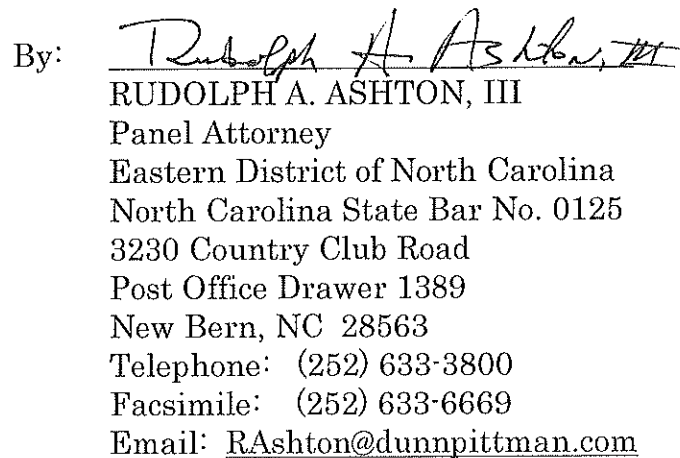 By: Rudolph A. Ashton, III
RUDOLPH A. ASHTON, III
Panel Attorney
Eastern District of North Carolina
North Carolina State Bar No. 0125
3230 Country Club Road
Post Office Drawer 1389
New Bern, NC 28563
Telephone: (252) 633-3800
Facsimile: (252) 633-6669
Email: RAshton@dunnpittman.com